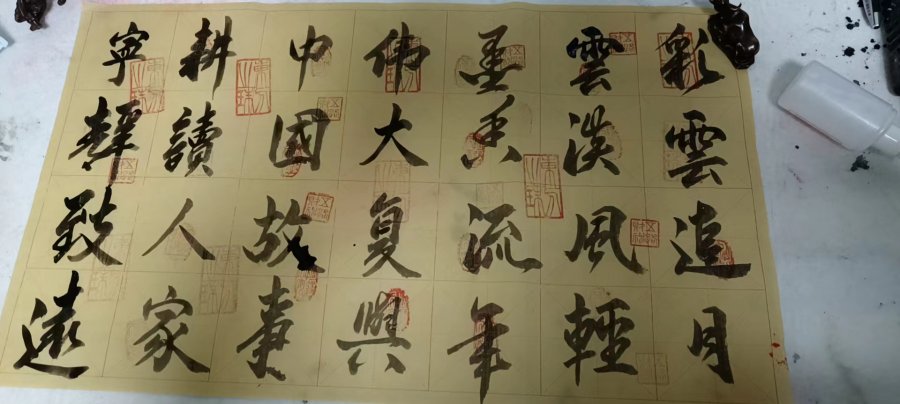 彩雲追月
雲淡風輕
墨香流年
偉大复興
中國故事
耕讀人家
寧靜致遠